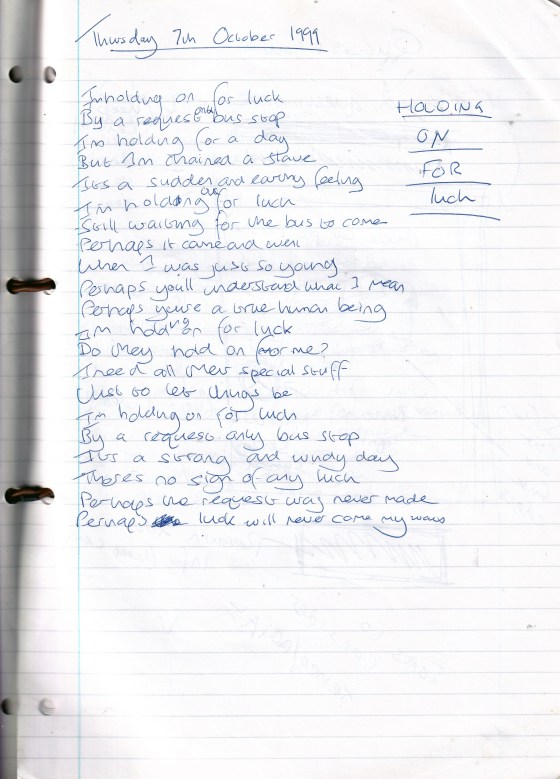 Thursday 7th October 1999
HOLDING
ON
FOR
luck
I'm holding on for luck
By a request only bus stop
I'm holding for a day
But I'm chained a slave
It's a sudden and earthy feeling
I'm holding on for luck
Still waiting for the bus to come
Perhaps it came and went
When I was just so young
Perhaps you'll understand what I mean
Perhaps you're a true human being
I'm holding on for luck
Do they hold on for me?
I need all their special stuff
Just to let things be
I'm holding on for luck
By a request only bus stop
It's a strong and windy day
There's no sign of any luck
Perhaps the request was never made
Perhaps luck will never come my ways